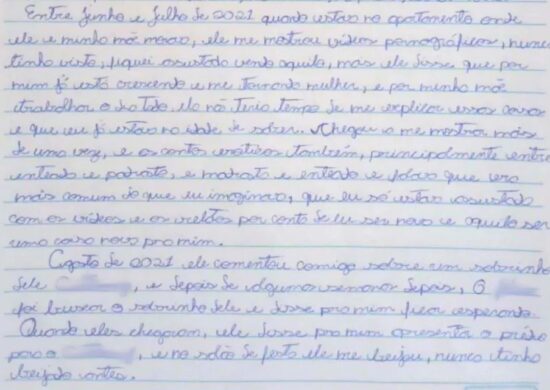 Entre Junho e Julho de 2021 quando estava no apartamento onde
ele e minha mãe morava, ele me mostrou vídeos pornográficos, nunca
tinha visto, fiquei assustada vendo aquilo, mas ele disse que por
mim já está crescendo e me tornando mulher, e por minha mãe
trabalhar o dia todo, ela não teria tempo de me explicar essas coisas
e que eu já estava na idade de saber. Chegou a me mostrar mais
de uma vez, e os contos eróticos também, principalmente entre
enteada e padrasto, e madrasta e enteado e falava que era
mais comum do que eu imaginava, que eu só estava assustada
com os vídeos e os relatos por conta de eu ser nova e aquilo ser
uma coisa nova pra mim.
Agosto de 2021 ele comentou comigo sobre um sobrinho
dele, e depois de algumas semanas depois, O
foi buscar o sobrinho dele e disse pra mim ficar esperando
Quando eles chegaram, ele disse pra mim apresentar o prédio
para o, e no salão de festa ele me beijou, nunca tinha
beijado antes.